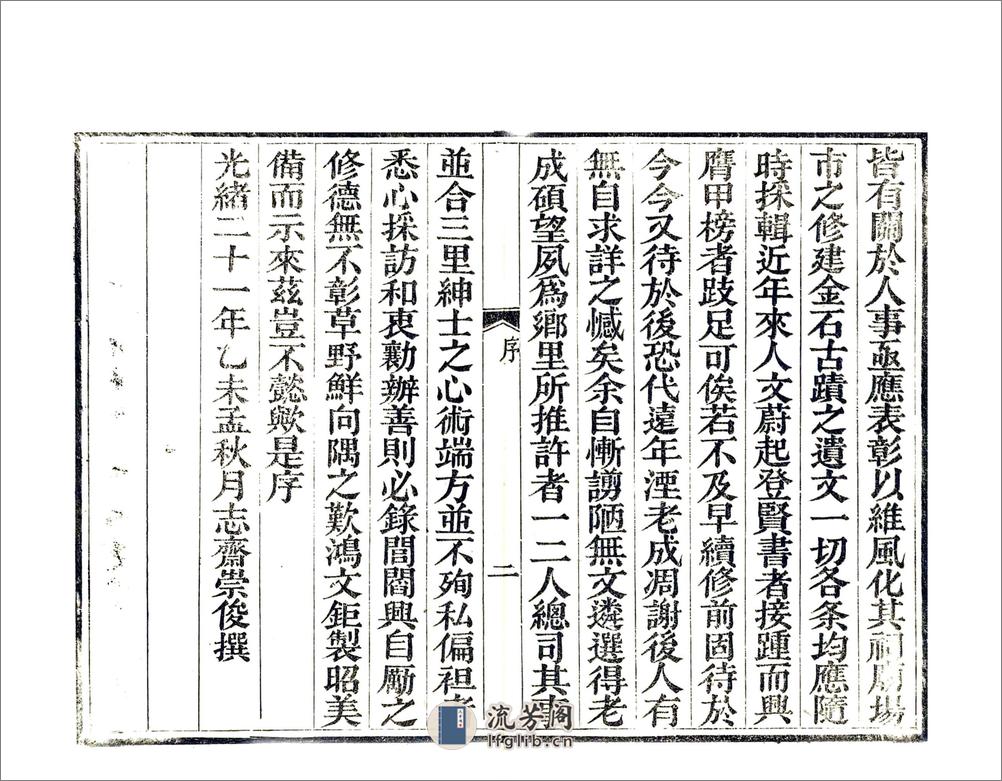 皆有關於人事亟應表彰以維風化其祠廟場
市之修建金石古蹟之遺文一切各条均應隨
時採輯近年來人文蔚起登賢書者接踵而興
膺甲榜者跂足可俟若不及早續修前固待於
今今又待於後恐代遠年湮老成凋謝後人有
無自求詳之憾矣余自慚謭陋無文遴選得老
成碩望夙為鄉里所推許者一二人總司其事
序
二
並合三里紳士之心術端方並不殉私偏袒者
悉心採訪和衷勷辦善則必錄閭閻興自勵之
修德無不彰草野鮮向隅之歎鴻文鉅製昭美
備而示來茲豈不懿歟是序
光緒二十一年乙未孟秋月志齋崇俊撰
流芳閣
lfglib.cn